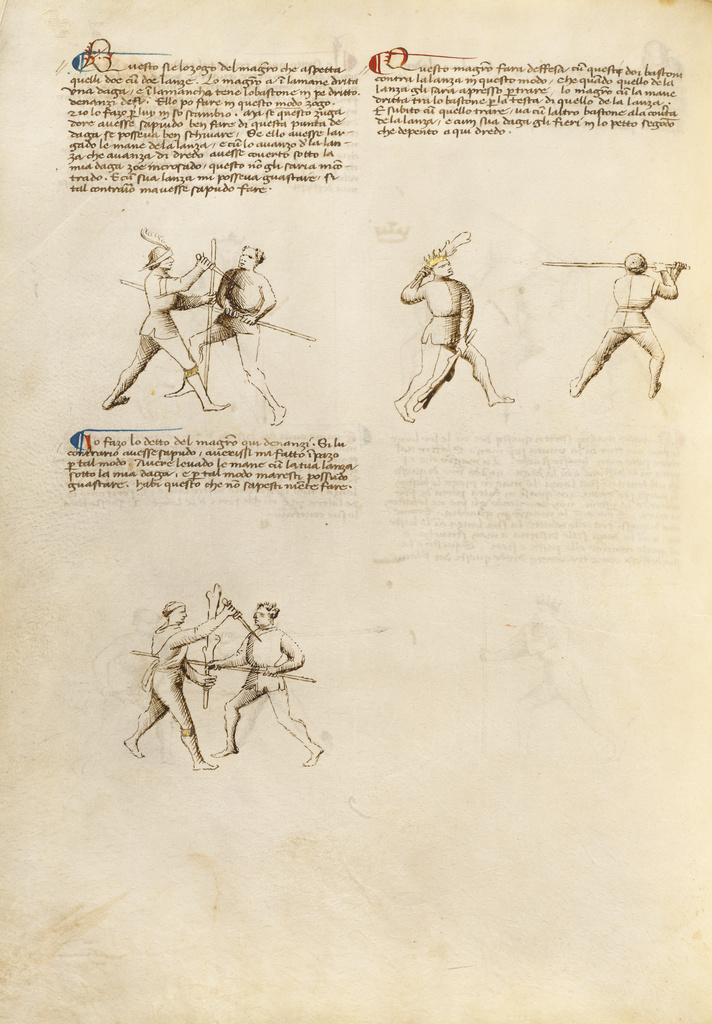 Questo sie lo zogo del magro che aspetta
quelli doe cum doe lanze. Lo magro a in la mane dritta
una daga, e in la mancha tene lo bastone in pe dritto
denanzi de si. Ello po fare in questo modo zogo.
Zio lo fazo per lui in so scambio. Ma se questo zuga
dore avesse sapudo ben fare di questa punta de
daga se posseva ben schivare. Se ello avesse lar-
gado le mane de la lanza, e cum lo avanzo de la lan-
za che avanza di dredo avesse coverto sotto la
mia daga zoe incrosado, questo non gli saria incon-
trado. E cum sua lanza mi posseva guastare, si
tal contrario ma vesse sapudo fare.
Questo magro fara deffesa cum questi doi bastoni
contra la lanza in questo modo. Che quando quello de la
lanza gli sara apresso per trare, lo magro cum la mane
dritta tra lo bastone per la testa di quello de la lanza.
E subito cum quello trare, va cum l altro bastone a la coverta
de la lanza, e cum sua daga gli fieri in lo petto segondo
che depento a qui dredo.
Io fazo lo detto del magro qui denanzi. Si lu
contrario avesse sapudo, averissi ma fatto impazo
per tal modo. Avere levado le mane cum la tua lanza
sotto la mia daga, e per tal modo maresti possudo
guastare. habi questo che non sapesti niente fare.